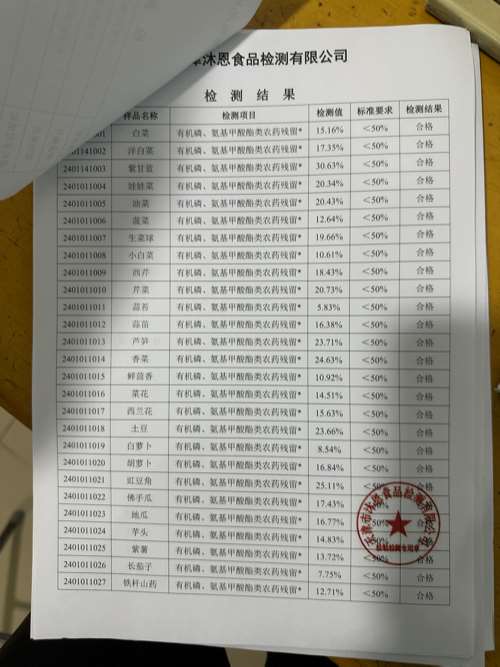 沐恩食品检测有限公司
检 测 结 果
样品名称 检测项目 检测值 标准要求 检测结果
001 白菜 有机磷、氨基甲酸酯类农药残留* 15.16% ＜50% 合格
2401141002 洋白菜 有机磷、氨基甲酸酯类农药残留* 17.35% ＜50% 合格
2401141003 紫甘蓝 有机磷、氨基甲酸酯类农药残留* 30.63% ＜50% 合格
2401011004 娃娃菜 有机磷、氨基甲酸酯类农药残留* 20.34% ＜50% 合格
2401011005 油菜 有机磷、氨基甲酸酯类农药残留* 20.43% ＜50% 合格
2401011006 菠菜 有机磷、氨基甲酸酯类农药残留* 12.64% ＜50% 合格
2401011007 生菜球 有机磷、氨基甲酸酯类农药残留* 19.66% ＜50% 合格
2401011008 小白菜 有机磷、氨基甲酸酯类农药残留* 10.61% ＜50% 合格
2401011009 西芹 有机磷、氨基甲酸酯类农药残留* 18.43% ＜50% 合格
2401011010 芹菜 有机磷、氨基甲酸酯类农药残留* 20.73% ＜50% 合格
2401011011 有机磷、氨基甲酸酯类农药残留* 5.83% ＜50% 合格
2401011012 蒜苗 有机磷、氨基甲酸酯类农药残留* 16.38% ＜50% 合格
2401011013 芦笋 有机磷、氨基甲酸酯类农药残留* 23.71% ＜50% 合格
2401011014 香菜 有机磷、氨基甲酸酯类农药残留* 24.63% ＜50% 合格
2401011015 鲜茴香 有机磷、氨基甲酸酯类农药残留* 10.92% ＜50% 合格
2401011016 菜花 有机磷、氨基甲酸酯类农药残留* 14.51% ＜50% 合格
2401011017 西兰花 有机磷、氨基甲酸酯类农药残留* 15.63% ＜50% 合格
2401011018 土豆 有机磷、氨基甲酸酯类农药残留* 23.66% ＜50% 合格
2401011019 白萝卜 有机磷、氨基甲酸酯类农药残留* 8.54% ＜50% 合格
2401011020 胡萝卜 有机磷、氨基甲酸酯类农药残留* 16.84% ＜50% 合格
2401011021 豇豆角 有机磷、氨基甲酸酯类农药残留* 25.11% ＜50% 合格
2401011022 佛手瓜 有机磷、氨基甲酸酯类农药残留* 17.43% ＜50% 合格
2401011023 地瓜 有机磷、氨基甲酸酯类农药残留* 16.77% ＜50% 合格
2401011024 芋头 有机磷、氨基甲酸酯类农药残留* 14.83% ＜50% 合格
2401011025 紫薯 有机磷、氨基甲酸酯类农药残留* 13.72% ＜50% 合格
2401011026 长茄子 有机磷、氨基甲酸酯类农药残留* 7.75% ＜50% 合格
2401011027 铁杆山药 有机磷、氨基甲酸酯类农药残留* 12.71% ＜50% 合格
天津市沐恩食品检测有限公司
检验检测专用章